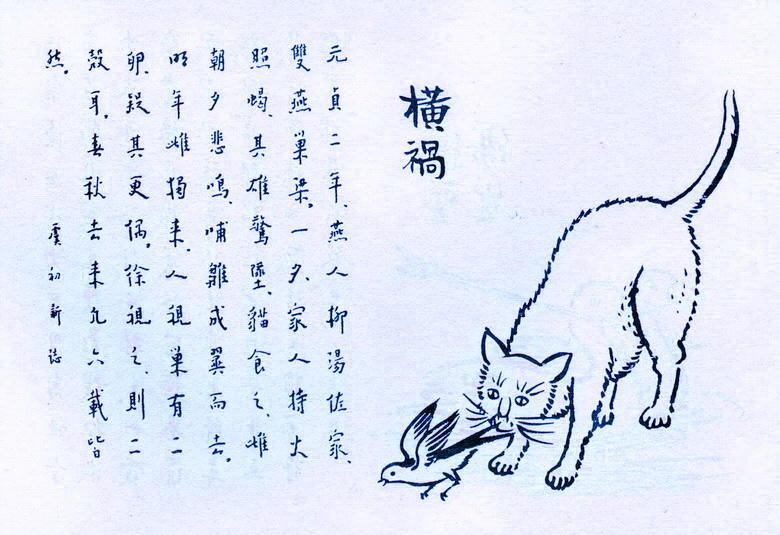 橫禍
元貞二年、燕人柳湯佐家、
雙燕巢梁。一夕、家人持火
照蝎、其雄驚墜、貓食之、雌
朝夕悲鳴、哺雛成翼而去。
明年雌獨来、人視巢有二
卵、疑其更偶。徐視之、則二
殼耳。春秋去来凡六載皆
然。
虞初新誌